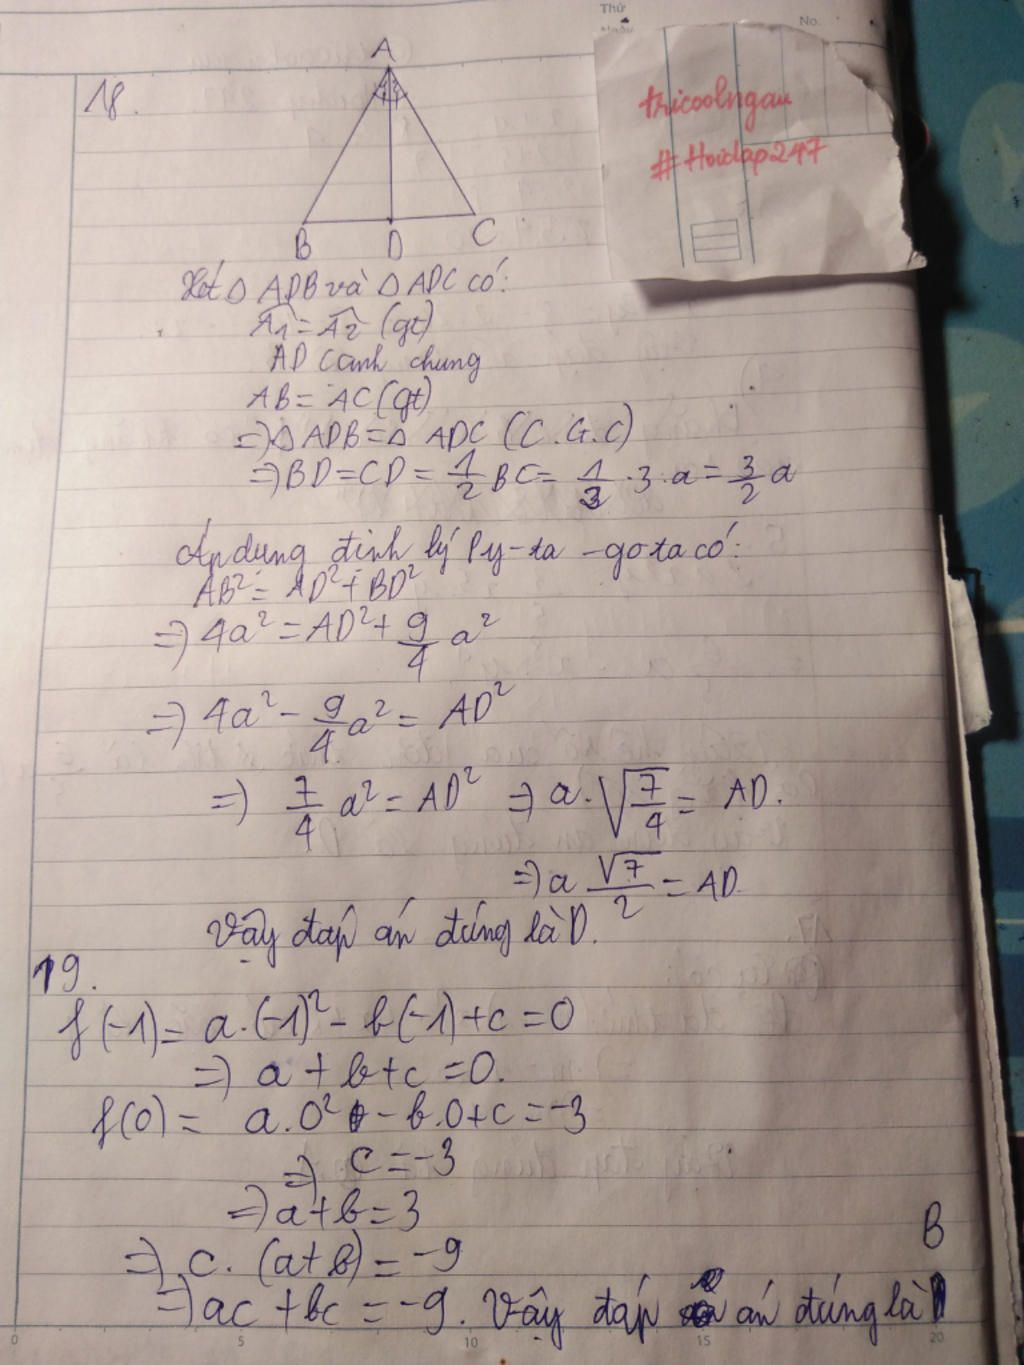 Thứ
No.
tricoolngau
#Hoidap247
18.
A
B D C
Xét △ ADB và △ ADC có:
Â1 = Â2 (gt)
AD cạnh chung
AB = AC (gt)
=> △ ADB = △ ADC (C.G.C)
=> BD = CD = 1/2 BC = 1/3 . 3 . a = 3/2 a
Áp dụng định lý Py-ta-go ta có:
AB² = AD² + BD²
=> 4a² = AD² + 9/4 a²
=> 4a² - 9/4 a² = AD²
=> 7/4 a² = AD² => a . √(7/4) = AD.
=> a √7/2 = AD
Vậy đáp án đúng là D.
19.
f(-1) = a.(-1)² - b(-1) + c = 0
=> a + b + c = 0.
f(0) = a.0² - b.0 + c = -3
=> c = -3
=> a + b = 3
B
=> c. (a+b) = -9
=> ac + bc = -9. Vậy đáp án đúng là
0 5 10 15 20